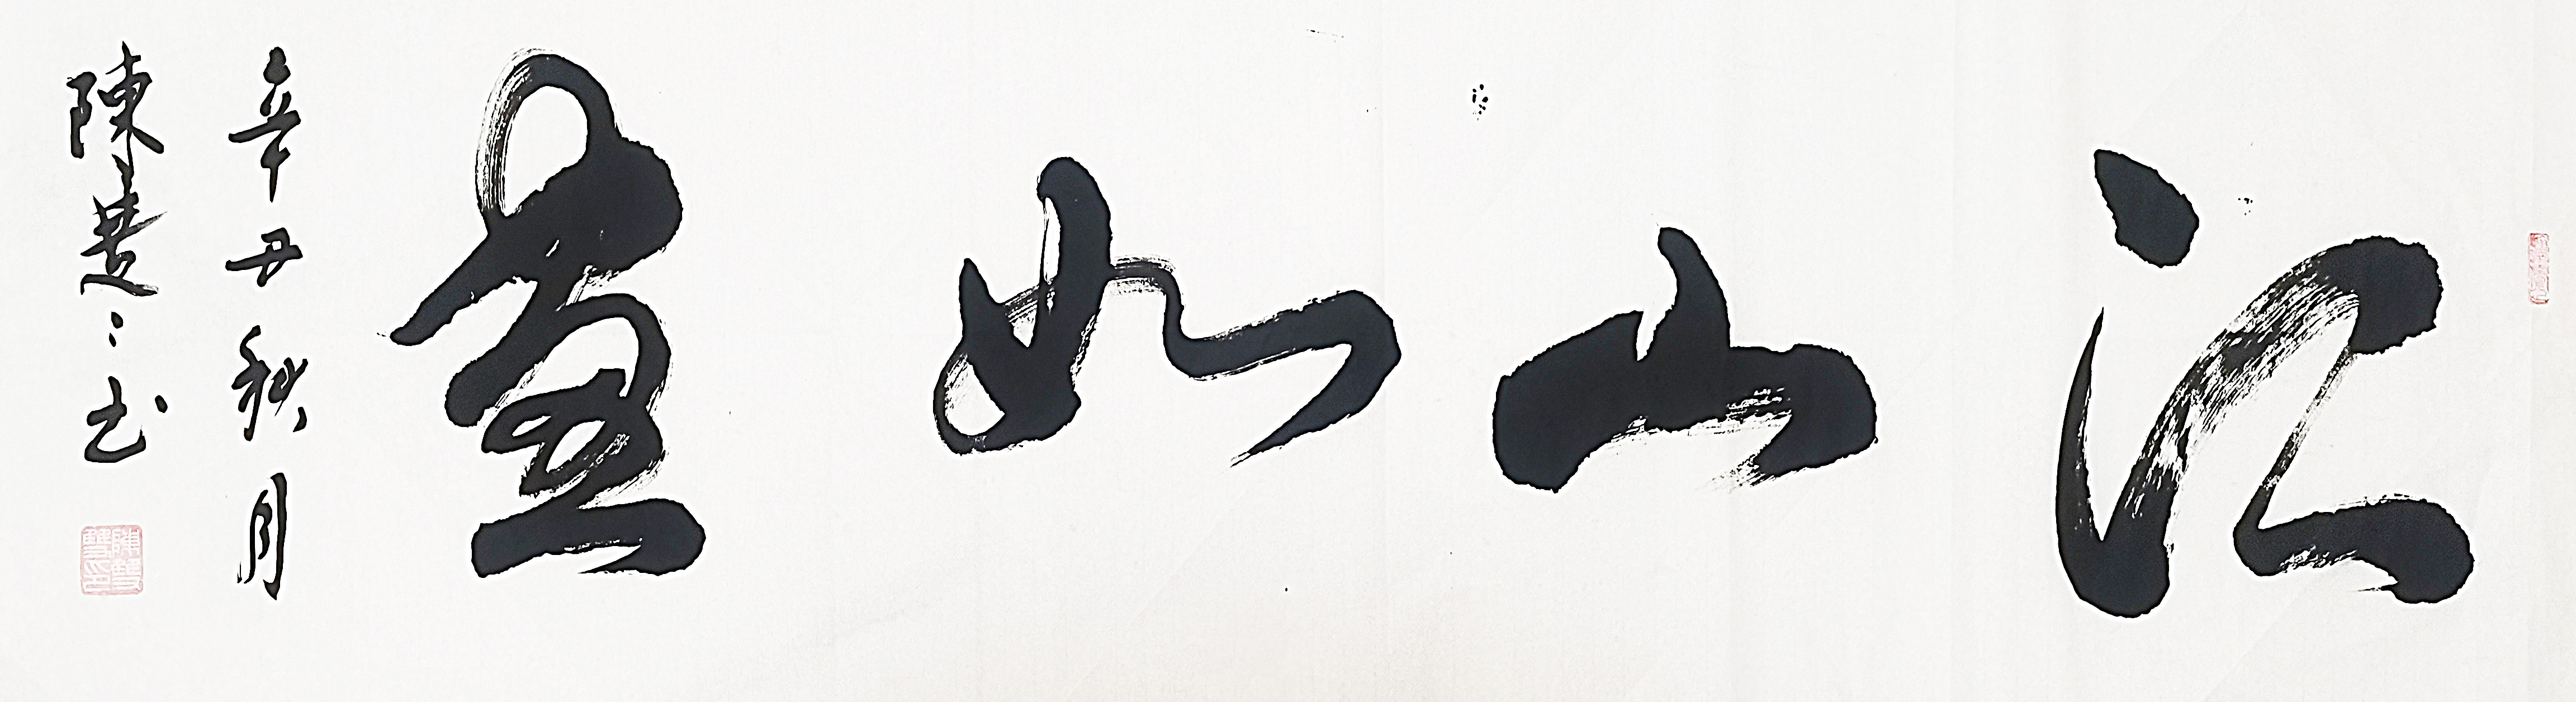 江山如畫
辛丑秋月
陳楚〻书